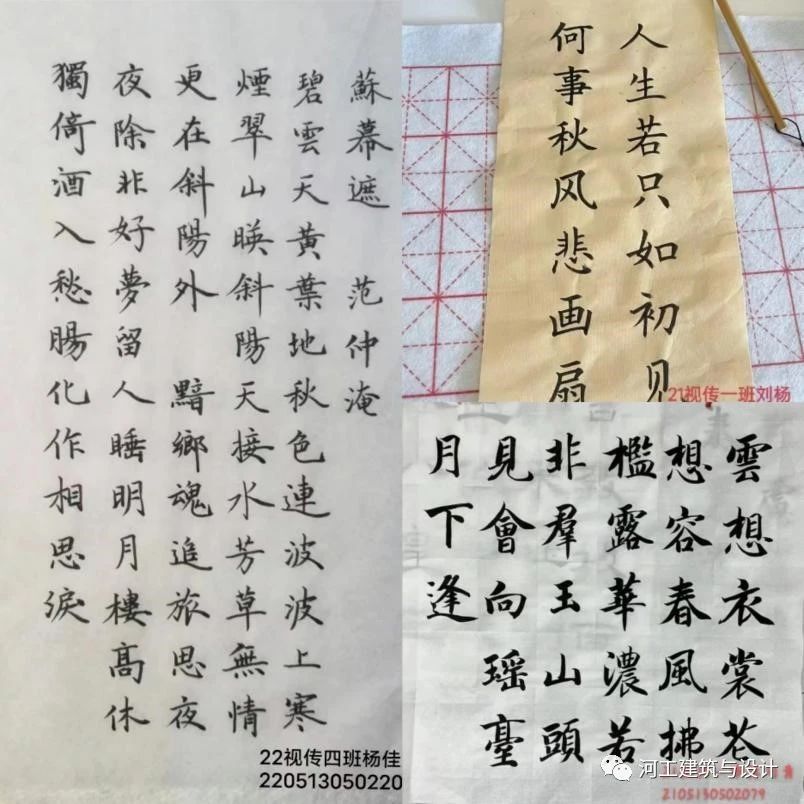 蘇幕遮 范仲淹
碧雲天黃葉地秋色連波波上寒
煙翠山暎斜陽天接水芳草無情
更在斜陽外 黯鄉魂追旅思夜
夜除非好夢留人睡明月樓高休
獨倚酒入愁腸化作相思淚
22视传四班杨佳
220513050220
人生若只如初见
何事秋风悲画扇
21视传一班刘杨
雲想衣裳花
想容春風拂
檻露華濃若
非羣玉山頭
見會向瑤臺
月下逢
河工建筑与设计
2105130502079